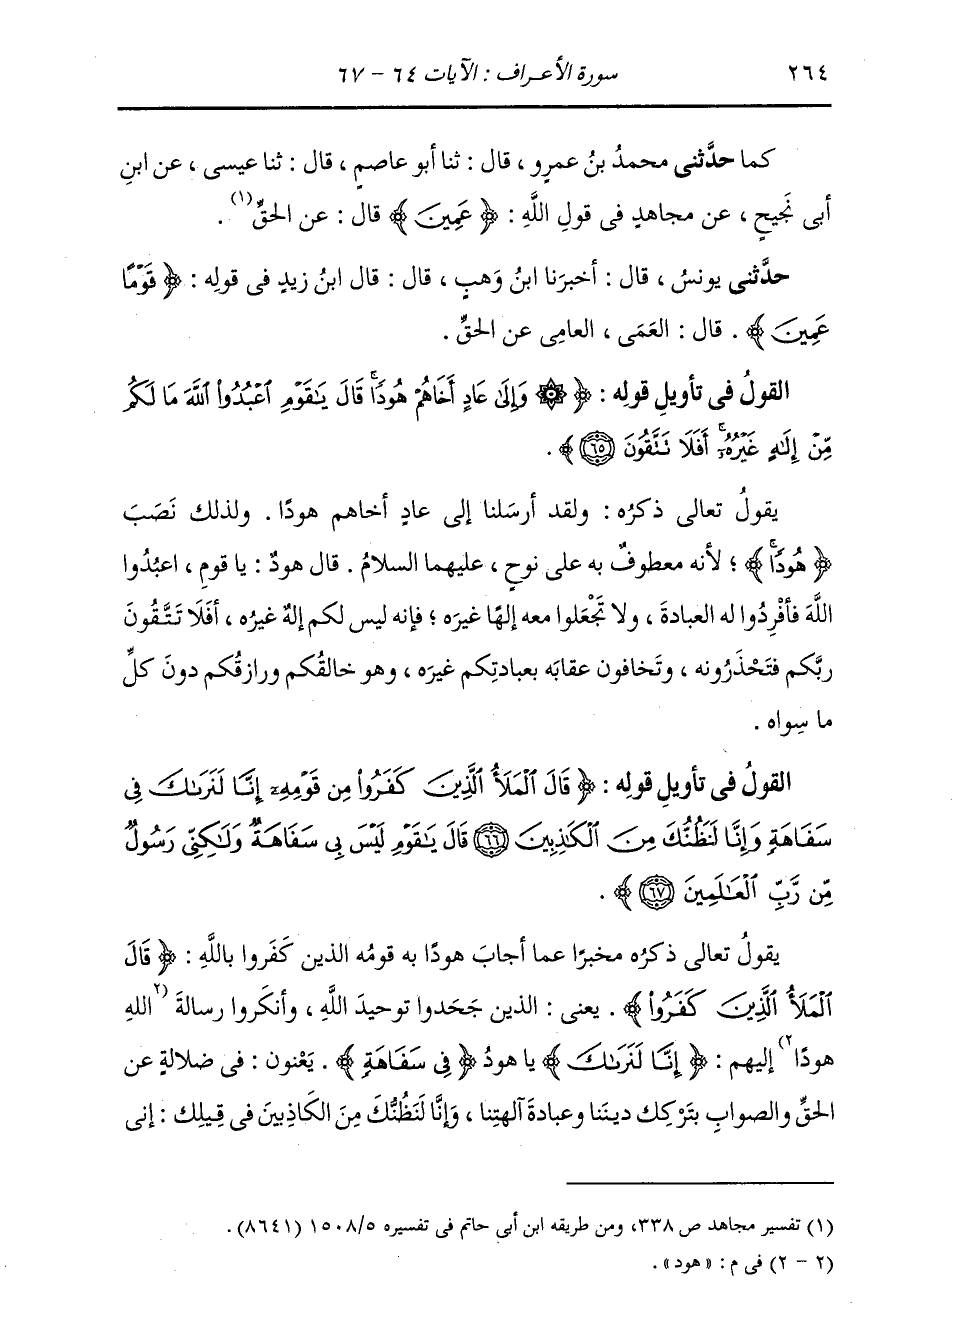 ٢٦٤ سورة الأعراف : الآيات ٦٤ - ٦٧
كما حدَّثنى محمدُ بنُ عمرٍو ، قال : ثنا أبو عاصمٍ ، قال : ثنا عيسى ، عن ابنِ
أبى نَجيحٍ ، عن مجاهدٍ فى قولِ اللَّهِ : ﴿ عَمِينَ ﴾ قال : عن الحقِّ(١) .
حدَّثنى يونسُ ، قال : أخبرَنا ابنُ وَهبٍ ، قال : قال ابنُ زيدٍ فى قولِه : ﴿ قَوْمًا
عَمِينَ ﴾ . قال : العَمَى ، العامِى عن الحقِّ .
القولُ فى تأويلِ قولِه : ﴿ ۞ وَإِلَىٰ عَادٍ أَخَاهُمْ هُودًا ۗ قَالَ يَٰقَوْمِ ٱعْبُدُوا۟ ٱللَّهَ مَا لَكُم
مِّنْ إِلَٰهٍ غَيْرُهُۥٓ ۚ أَفَلَا تَتَّقُونَ ٦٥ ﴾ .
يقولُ تعالى ذكرُه : ولقد أرسَلنا إلى عادٍ أخاهم هودًا . ولذلك نَصَبَ
﴿ هُودًا ۗ ﴾ ؛ لأنه معطوفٌ به على نوحٍ ، عليهما السلامُ . قال هودٌ : يا قومِ ، اعبُدُوا
اللَّهَ فأفْرِدُوا له العبادةَ ، ولا تَجْعَلوا معه إلهًا غيرَه ؛ فإنه ليس لكم إلهٌ غيرُه ، أَفَلَا تَتَّقُونَ
ربَّكم فتَحْذَرُونه ، وتَخافون عقابَه بعبادتِكم غيرَه ، وهو خالقُكم ورازقُكم دونَ كلِّ
ما سِواه .
القولُ فى تأويلِ قولِه : ﴿ قَالَ ٱلْمَلَأُ ٱلَّذِينَ كَفَرُوا۟ مِن قَوْمِهِۦٓ إِنَّا لَنَرَىٰكَ فِى
سَفَاهَةٍ وَإِنَّا لَنَظُنُّكَ مِنَ ٱلْكَٰذِبِينَ ٦٦ قَالَ يَٰقَوْمِ لَيْسَ بِى سَفَاهَةٌ وَلَٰكِنِّى رَسُولٌ
مِّن رَّبِّ ٱلْعَٰلَمِينَ ٦٧ ﴾ .
يقولُ تعالى ذكرُه مخبرًا عما أجابَ هودًا به قومُه الذين كَفَروا باللَّهِ : ﴿ قَالَ
ٱلْمَلَأُ ٱلَّذِينَ كَفَرُوا۟ ﴾ . يعنى : الذين جَحَدوا توحيدَ اللَّهِ ، وأنكَروا رسالةَ (٢اللهِ
هودًا٢) إليهم : ﴿ إِنَّا لَنَرَىٰكَ ﴾ يا هودُ ﴿ فِى سَفَاهَةٍ ﴾ . يَعْنون : فى ضلالةٍ عن
الحقِّ والصوابِ بتَرْكِك دينَنا وعبادةَ آلهتِنا ، وَإِنَّا لَنَظُنُّكَ مِنَ الكَاذِبينَ فى قِيلِك : إنى
(١) تفسير مجاهد ص ٣٣٨، ومن طريقه ابن أبى حاتم فى تفسيره ١٥٠٨/٥ (٨٦٤١) .
(٢ - ٢) فى م : « هود » .